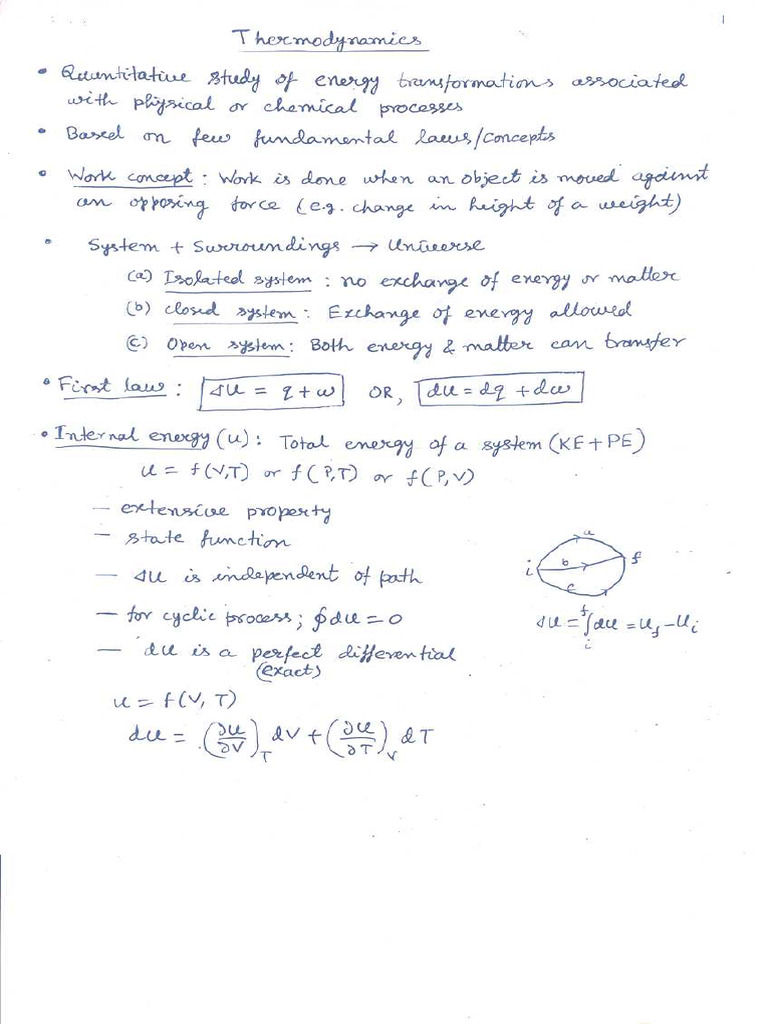 1
Thermodynamics
• Quantitative study of energy transformations associated
with physical or chemical processes
• Based on few fundamental laws/concepts
• Work concept : Work is done when an object is moved against
an opposing force (e.g. change in height of a weight)
• System + Surroundings → Universe
(a) Isolated system : no exchange of energy or matter
(b) closed system : Exchange of energy allowed
(c) Open system : Both energy & matter can transfer
• First law : ΔU = q + w OR, dU = dq + dw
• Internal energy (U) : Total energy of a system (KE + PE)
U = f(V,T) or f(P,T) or f(P,V)
— extensive property
— state function
— ΔU is independent of path
— for cyclic process; ∮dU = 0
— dU is a perfect differential
(exact)
a
i b f
c
ΔU = ∫_i^f dU = U_f - U_i
U = f(V, T)
dU = (∂U/∂V)_T dV + (∂U/∂T)_V dT